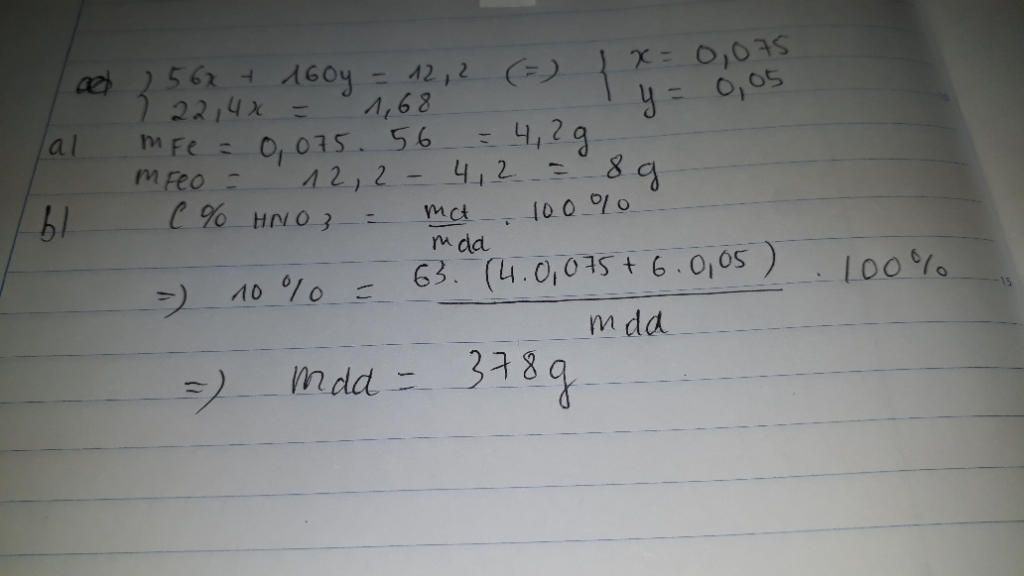 { 56x + 160y = 12,2 (=) { x = 0,075
22,4x = 1,68 y = 0,05
a) mFe = 0,075. 56 = 4,2g
mFeO = 12,2 - 4,2 = 8g
b) C% HNO3 = mct/mdd . 100%
=) 10% = 63. (4.0,075 + 6.0,05)/mdd . 100%
=) mdd = 378g
15